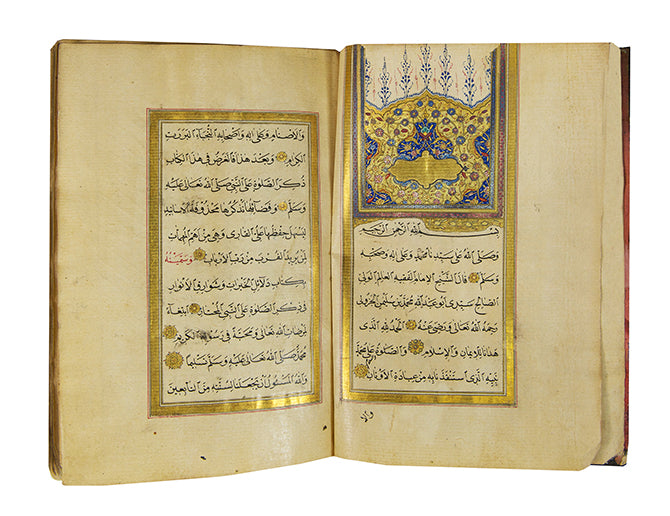 بسم الله الرحمن الرحيم
وصلى الله على سيدنا محمد وعلى اله وصحبه
وسلم قال الشيخ الامام الفقيه العالم الولي
الصالح سيدي ابو عبد الله محمد بن سليمن الجزولي
رحمه الله تعالى ورضي عنه الحمد لله الذي
هدانا للايمان والاسلام والصلوة على محمد
نبيه الذي استنقذنا به من عبادة الاوثان
والا
والاصنام وعلى اله واصحابه النجباء البررة
الكرام وبعد هذا فالغرض في هذا الكتاب
ذكر الصلوة على النبي صلى الله تعالى عليه
وسلم وفضائلها نذكرها محذوفة الاسانيد
ليسهل حفظها على القارئ وهي من اهم المهمات
لمن يريد القرب من رب الارباب وسميته
بكتاب دلائل الخيرات وشوارق الانوار
في ذكر الصلوة على النبي المختار ابتغاء
لمرضات الله تعالى ومحبة في رسوله الكريم
محمد صلى الله تعالى عليه وسلم تسليما
والله المسئول ان يجعلنا لسنته من التابعين